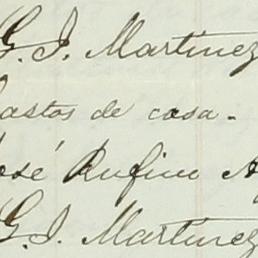 G. I. Martinez
Gastos de casa.
José Rufino
G. I. Martinez